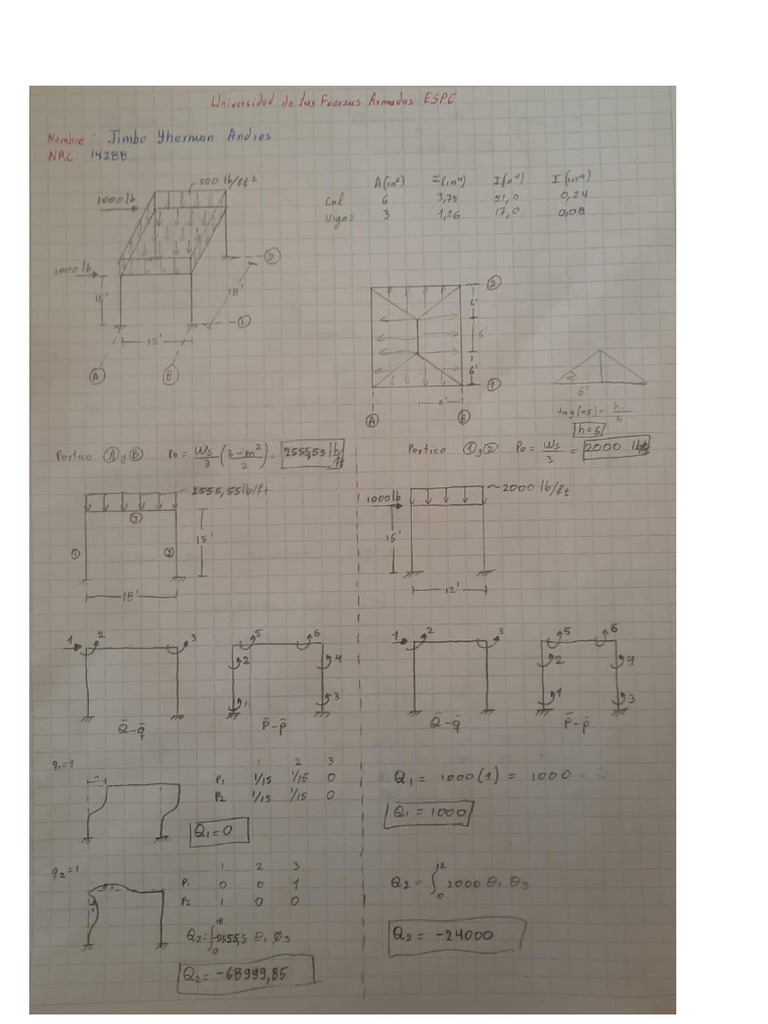 Universidad de las Fuerzas Armadas ESPE
Nombre: Jimbo Jherman Andres
NRC 14288.
500 lb/ft²
1000 lb
1000 lb
15'
12'
18'
A
B
1
2
A(in²) I(in⁴) I(in⁴) I(in⁴)
Col 6 3,75 51,0 0,24
Vigas 3 1,26 17,0 0,08
2
6'
6'
6'
1
6'
A
B
45
6'
tag(45) = h/6
h=6
Portico A y B Po = Ws/3 (3-m²/2) = 2555,55 lb/ft
Portico 1 y 2 Po = Ws/3 = 2000 lb/ft
2555,55 lb/ft
3
1
2
15'
18'
1000 lb
2000 lb/ft
15'
12'
1 2 3
Q̄-q̄
5 6
2 4
1 3
P̄-p̄
1 2 3
Q̄-q̄
5 6
2 4
1 3
P̄-p̄
q1=1
1 2 3
P1 1/15 1/15 0
P2 1/15 1/15 0
Q1=0
Q1 = 1000(1) = 1000
Q1 = 1000
q2=1
1 2 3
P1 0 0 1
P2 1 0 0
Q2=∫₀¹⁸-2555,5 θ1 θ3
Q2= -68999,85
Q2 = ∫₀¹² 2000 θ1 θ3
Q2 = -24000